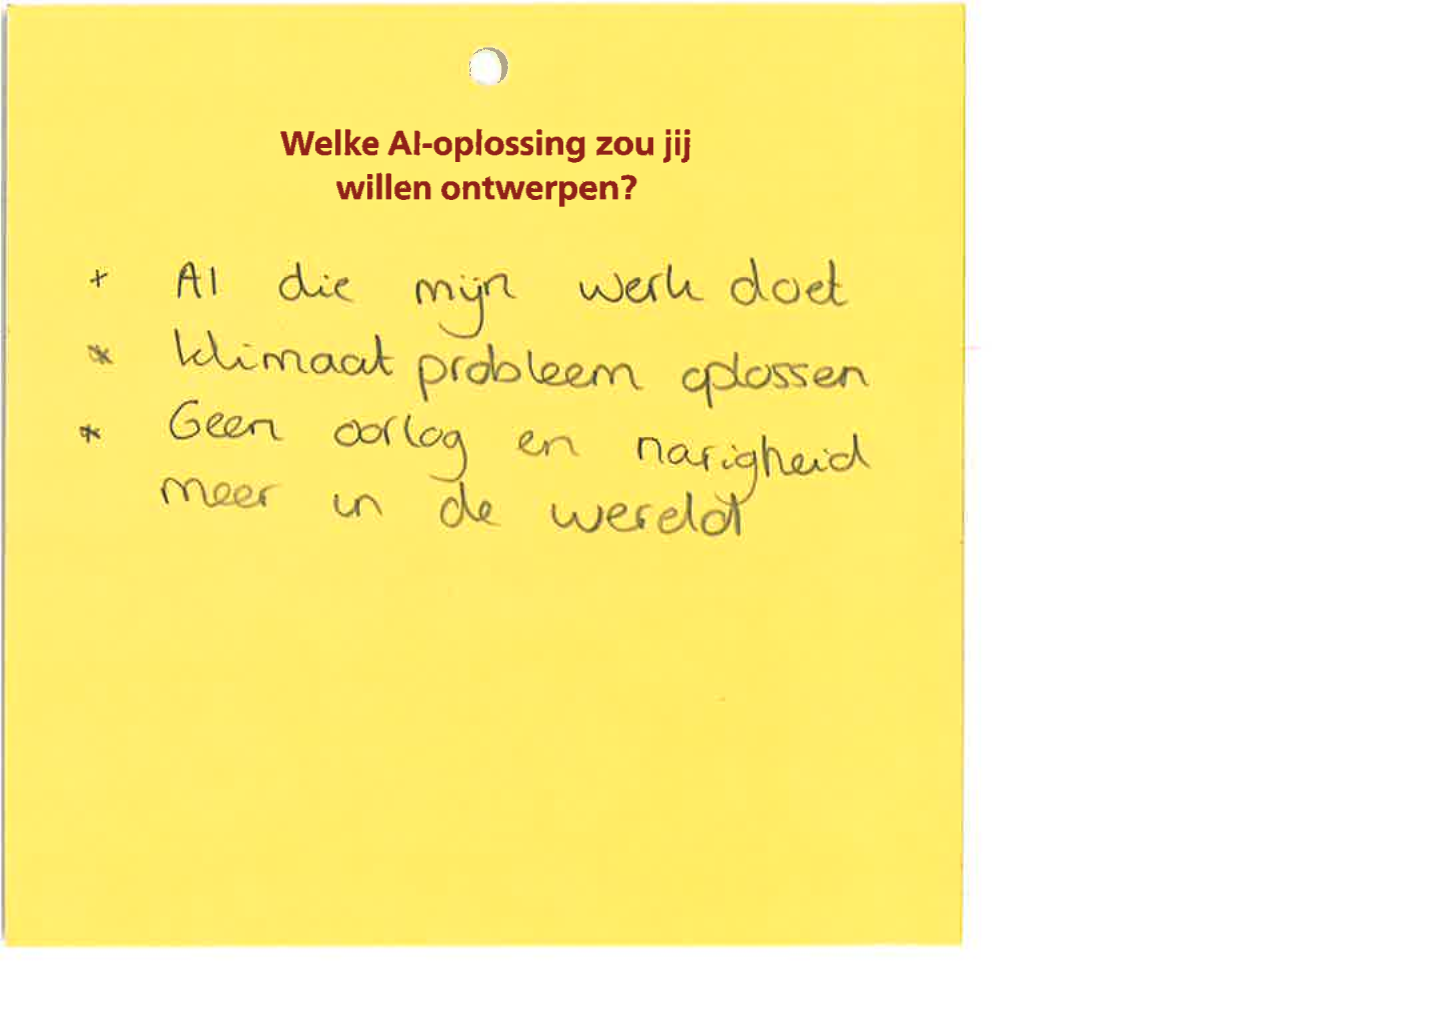 Welke AI-oplossing zou jij
willen ontwerpen?
+ AI die mijn werk doet
* klimaat probleem oplossen
* Geen oorlog en narigheid
meer in de wereld